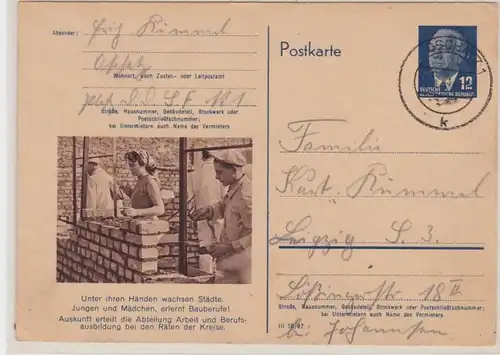 Absender: Erich Kümmel
Wohnort, auch Zustell- oder Leitpostamt
Straße, Hausnummer, Gebäudeteil, Stockwerk oder
Postschließfachnummer;
bei Untermietern auch Name des Vermieters
Unter ihren Händen wachsen Städte.
Jungen und Mädchen, erlernt Bauberufe!
Auskunft erteilt die Abteilung Arbeit und Berufs-
ausbildung bei den Räten der Kreise.
Postkarte
DEUTSCHE
DEMOKRATISCHE REPUBLIK
12
k
Familie
Kurt Kümmel
Leipzig S. 3.
18 II
Straße, Hausnummer, Gebäudeteil, Stockwerk oder Postschließfachnummer;
bei Untermietern auch Name des Vermieters
bei Johannsen